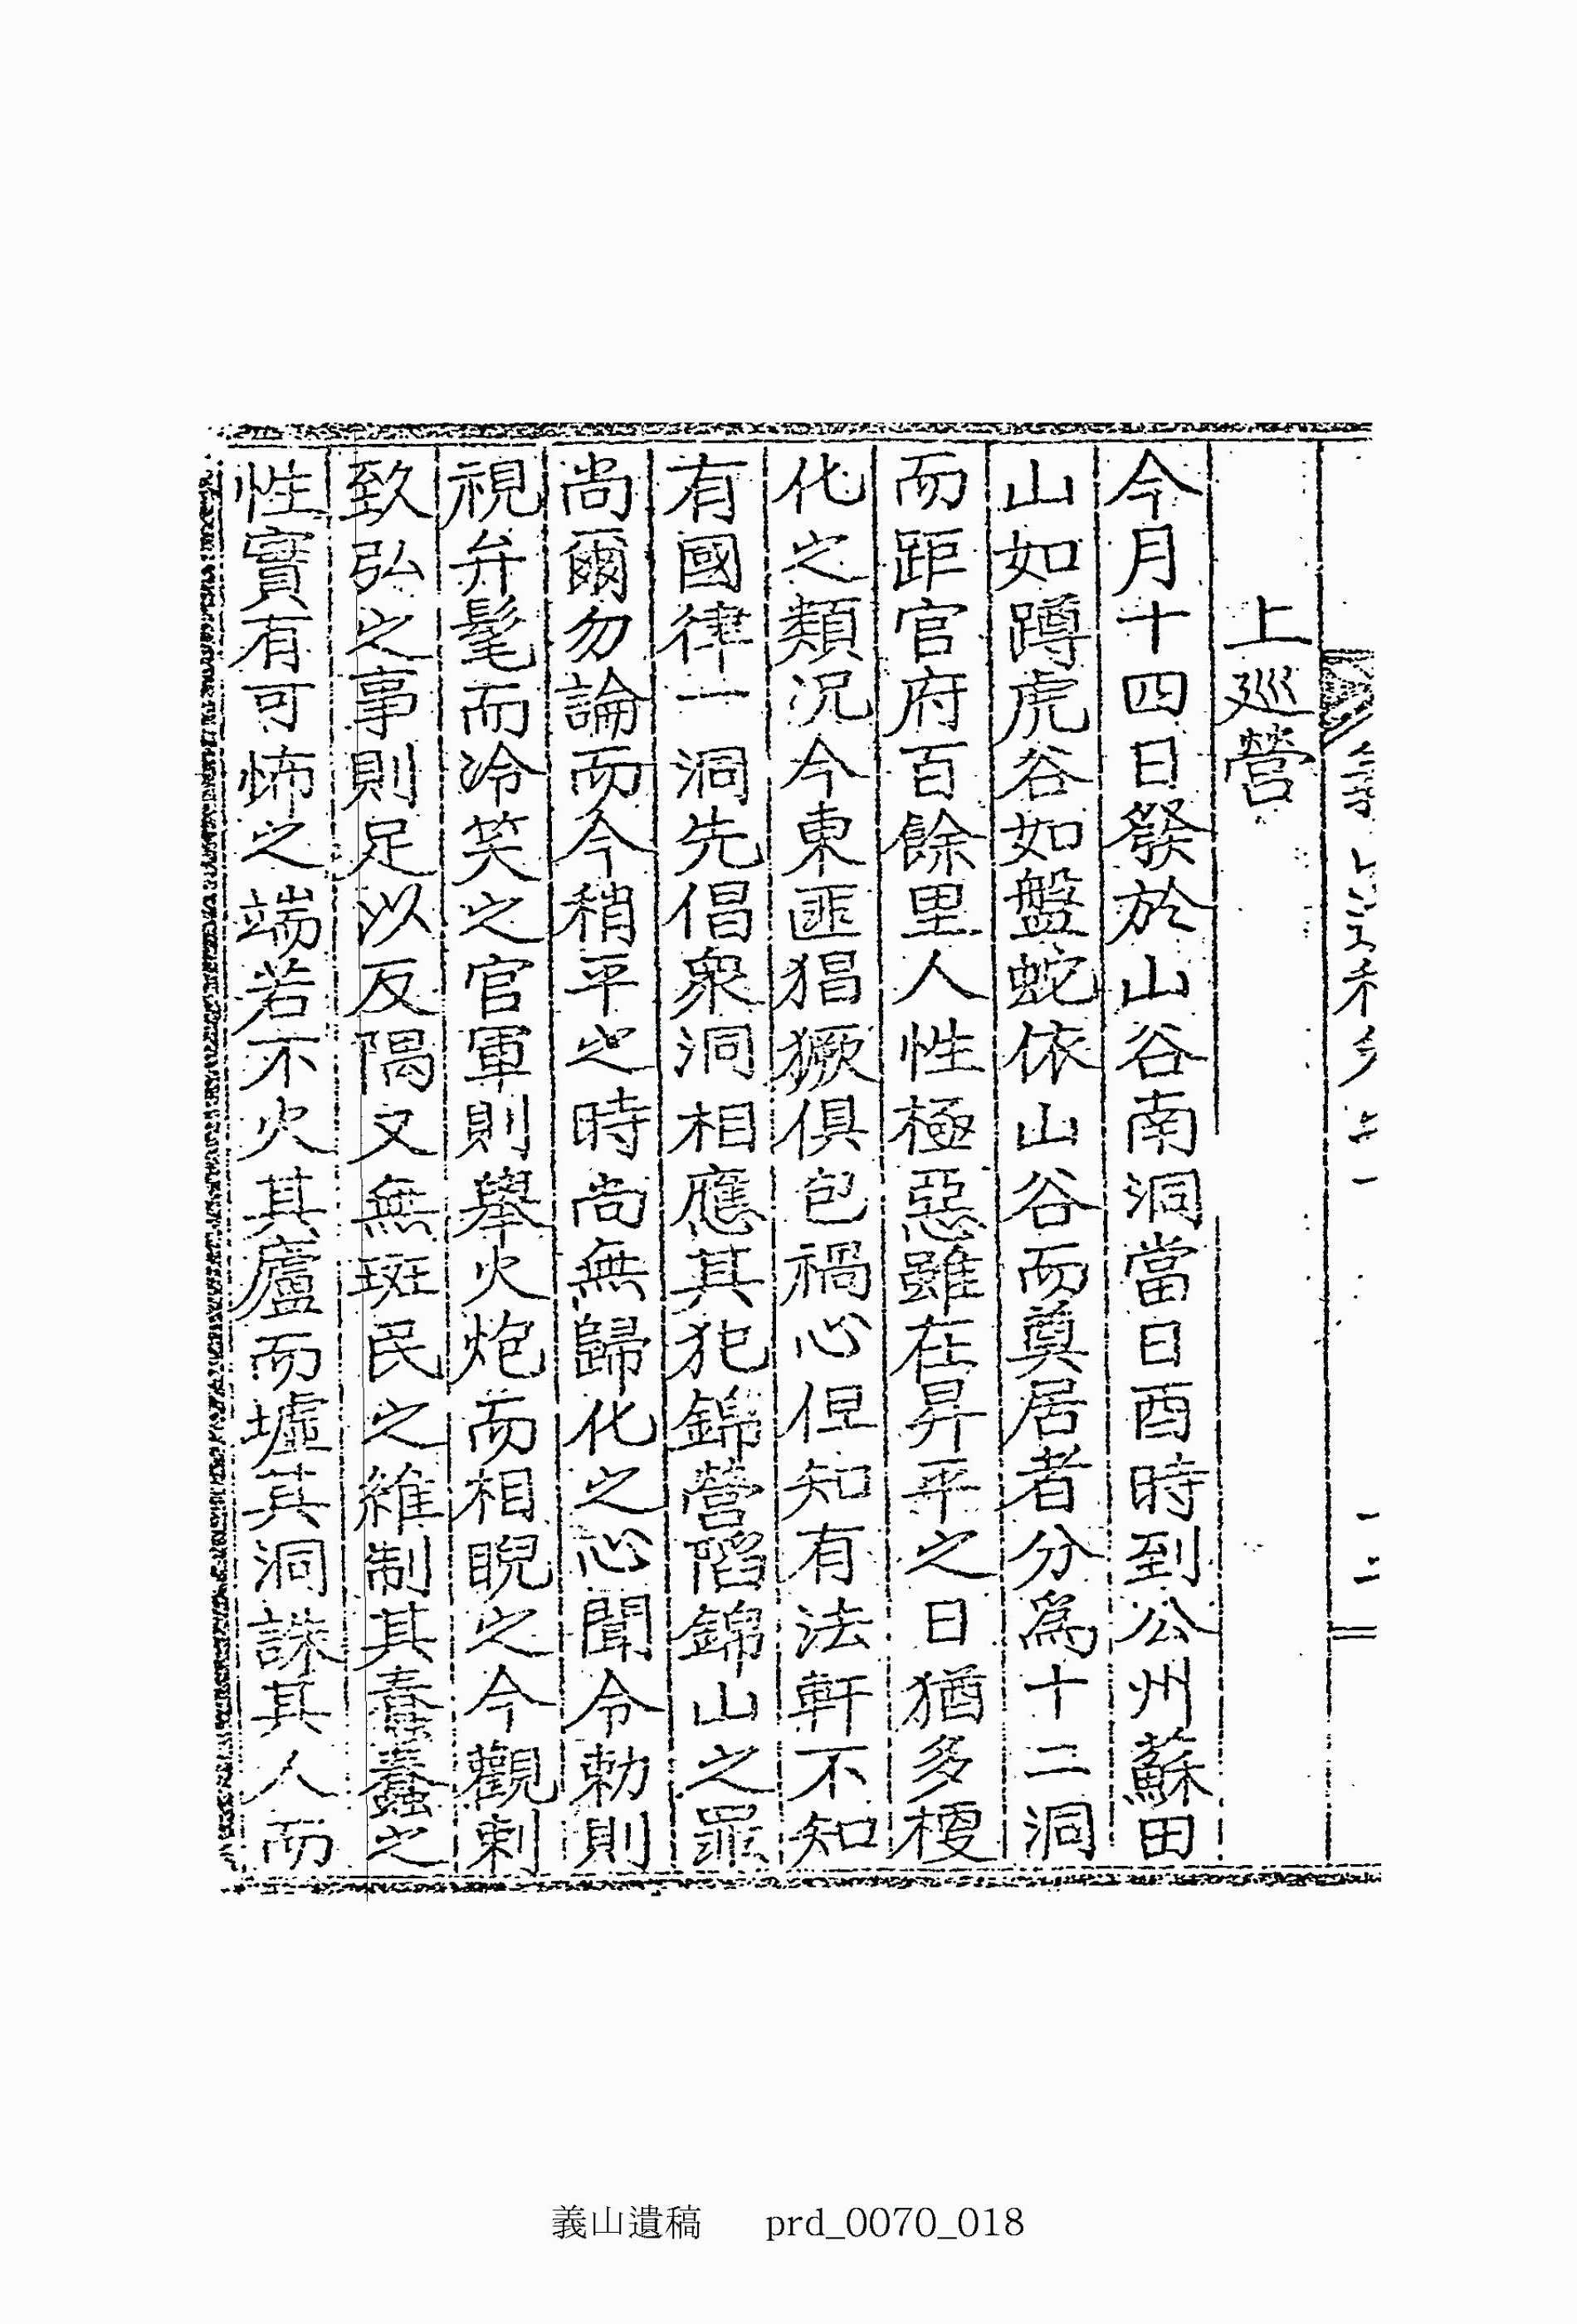 上巡營
今月十四日發於山谷南洞當日酉時到公州蘇田
山如蹲虎谷如盤蛇依山谷而奠居者分爲十二洞
而距官府百餘里人性極惡雖在昇平之日猶多梗
化之類況今東匪猖獗俱包禍心但知有法軒不知
有國律一洞先倡衆洞相應其犯錦營陷錦山之罪
尚爾勿論而今稍平之時尚無歸化之心聞令勅則
視弁髦而冷笑之官軍則擧火炮而相睨之今觀剌
致弘之事則足以反隅又無斑民之維制其蠢蠢之
性實有可怖之端若不火其廬而墟其洞誅其人而
義山遺稿 prd_0070_018